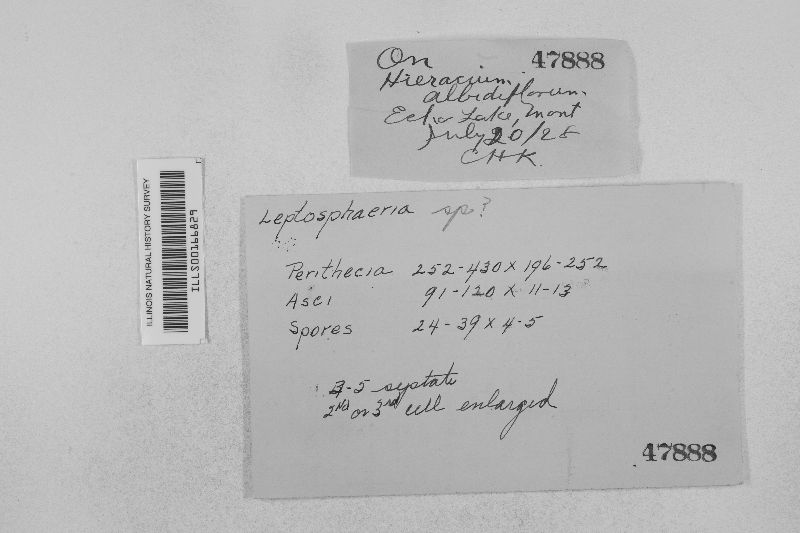 On 47888
Hieracium
albidiflorum.
Echo Lake, Mont
July 20/28
CHK.
ILLINOIS NATURAL HISTORY SURVEY
ILLS00166829
Leptosphaeria sp?
Perithecia 252-430 x 196-252
Asci 91-120 x 11-13
Spores 24-39 x 4-5
4-5 septate
2nd or 3rd cell enlarged
47888